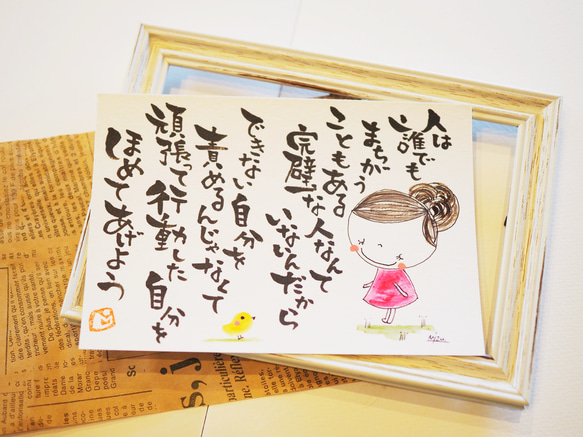 人は
誰でも
まちがう
こともある
完璧な人なんて
いないんだから
できない自分を
責めるんじゃなくて
頑張って行動した自分を
ほめてあげよう